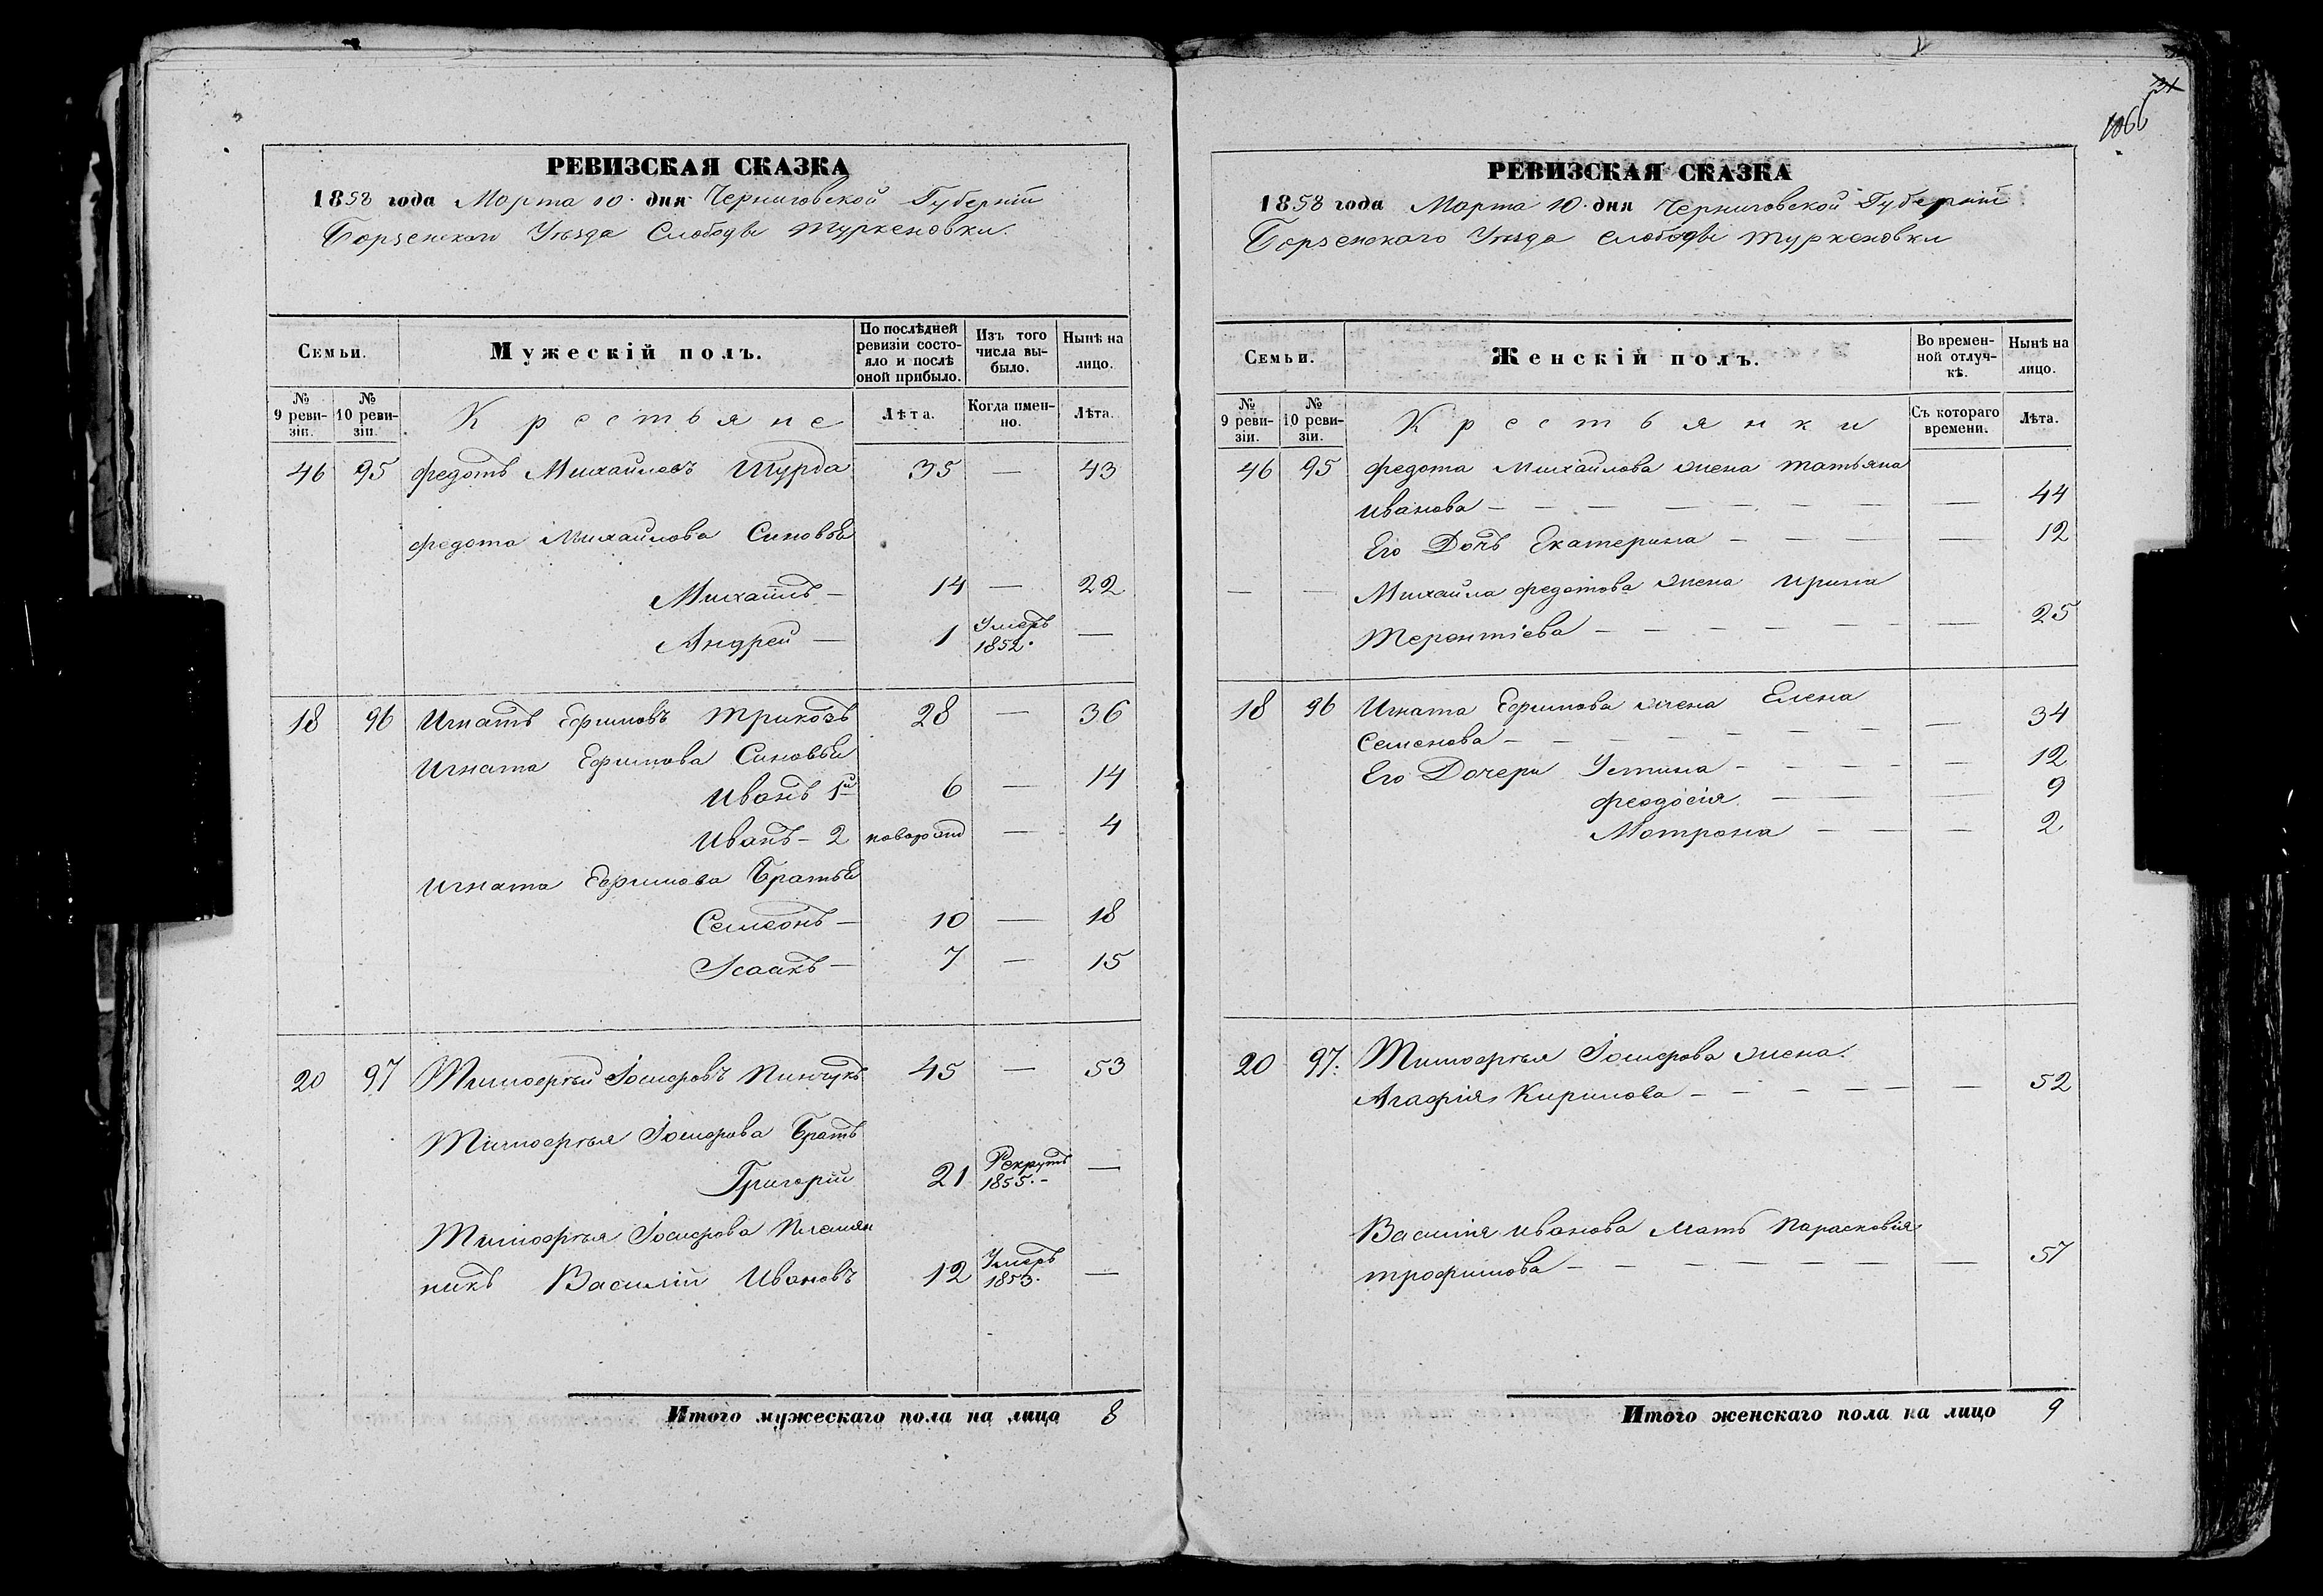 РЕВИЗСКАЯ СКАЗКА
1858 года Марта 10 дня Черниговской Губерніи
Борзенскаго Уѣзда Слободы Туркеновки.
Семьи.
Мужескій полъ.
По послѣдней ревизіи состояло и послѣ оной прибыло.
Изъ того числа выбыло.
Нынѣ на лицо.
№ 9 ревизіи.
№ 10 ревизіи.
Крестьяне
Лѣта.
Когда именно.
Лѣта.
46 95 Федотъ Михайловъ Шурда 35 — 43
Федота Михайлова Сыновья
Михаилъ — 14 — 22
Андрей — 1 Умеръ 1852. —
18 96 Игнатъ Ефимовъ Трикозъ 28 — 36
Игната Ефимова Сыновьи
Иванъ 1й 6 — 14
Иванъ — 2 новорожд — 4
Игната Ефимова Братьи
Семеонъ — 10 — 18
Ісаакъ — 7 — 15
20 97 Тимофѣй Іосифовъ Пинчукъ 45 — 53
Тимофѣя Іосифова Братъ
Григорій 21 Рекрутъ 1855. — —
Тимофѣя Іосифова Племян
никъ Василій Ивановъ 12 Умеръ 1853. —
Итого мужескаго пола на лицо 8
21
1066
РЕВИЗСКАЯ СКАЗКА
1858 года Марта 10 дня Черниговской Губерніи
Борзенскаго Уѣзда Слободы Туркеновки
Семьи.
Женскій полъ.
Во временной отлучкѣ.
Нынѣ на лицо.
№ 9 ревизіи.
№ 10 ревизіи.
Крестьянки
Съ котораго времени.
Лѣта.
46 95 Федота Михайлова жена Татьяна
Иванова — — — — — — — 44
Его Дочъ Екатерина — — — — 12
— — Михаила Федотова жена Ирина
Терентіева — — — — — — — 25
18 96 Игната Ефимова жена Елена
Семенова — — — — — — — 34
Его Дочери Устина — — — — — 12
Феодосія — — — — 9
Мотрона — — — 2
20 97. Тимофѣя Іосифова жена.
Агафія Кирилова — — — — — — 52
Василія Иванова Мать Парасковія
Трофимова — — — — — — — 57
Итого женскаго пола на лицо 9